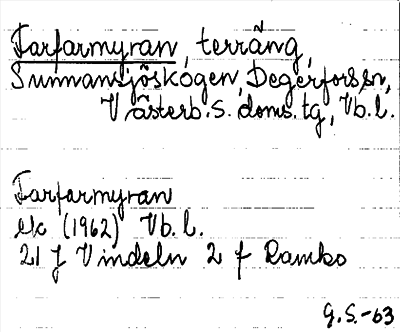 Farfarmyran, terräng,
Sunnansjöskogen, Degerfors sn,
Västerb. s. doms. tg, Vb. l.
Farfarmyran
ek (1962) Vb. l.
21 J Vindeln 2 f Ramsko
G. S. -63